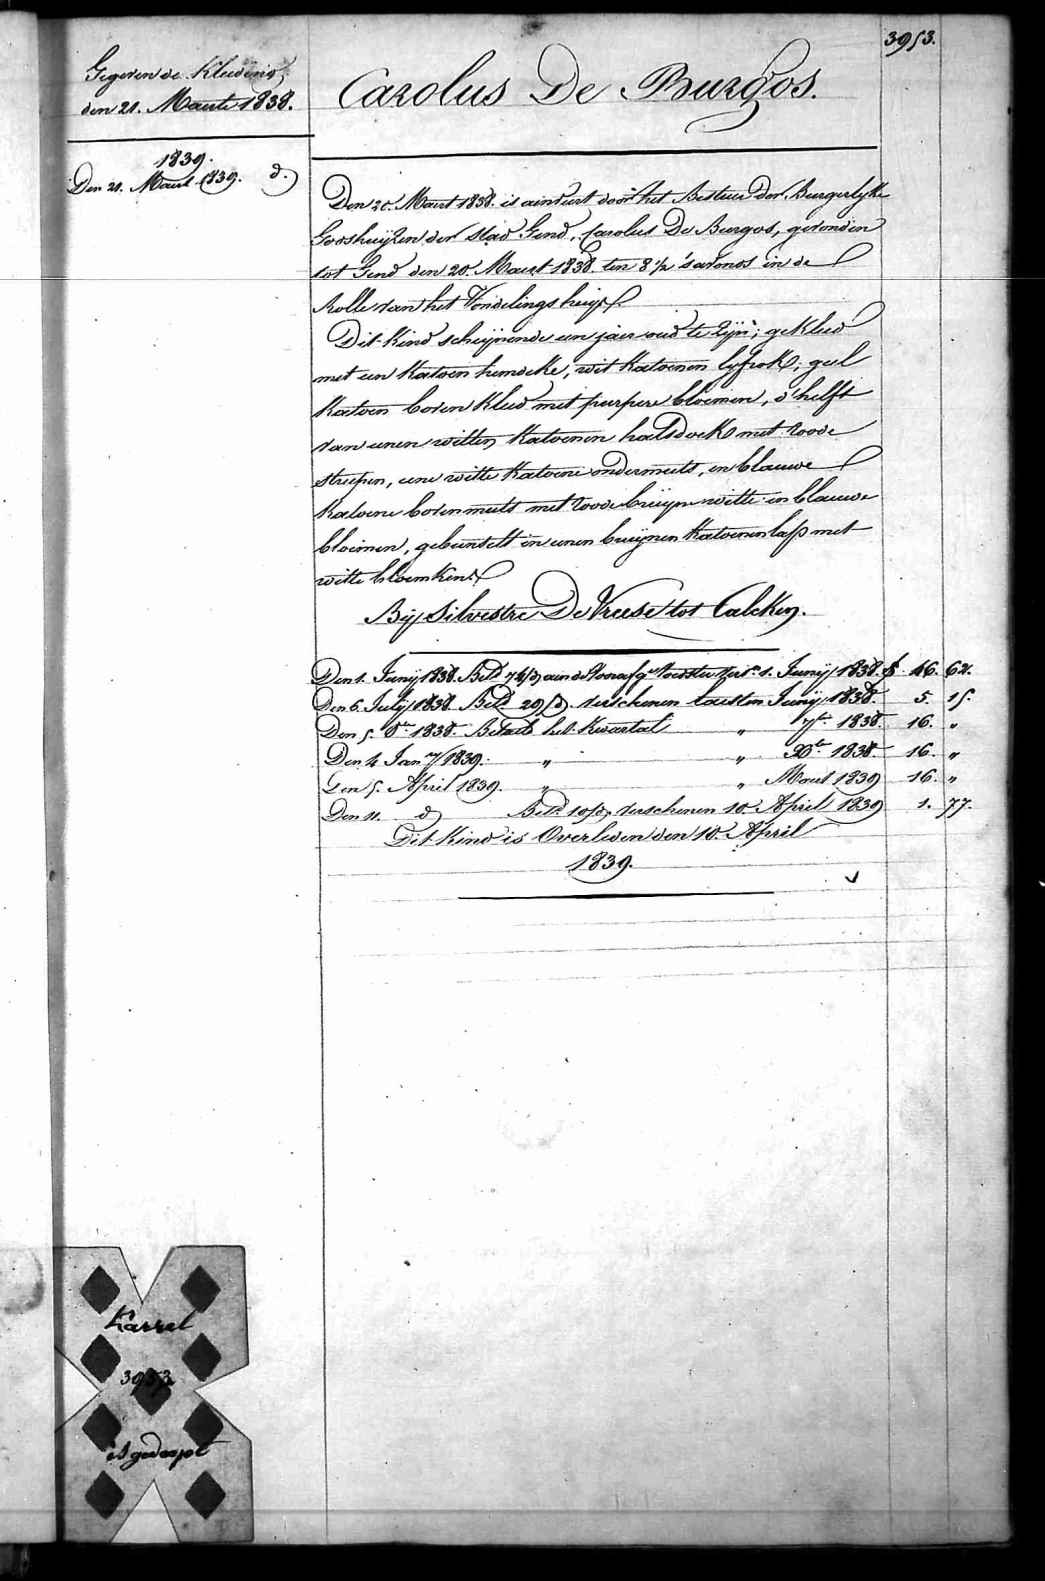 3953.
Gegeven de Kleeding,
den 21. Maarte 1838.
1839.
Den 21. Maart 1839. d.
Carolus De Burgos.
Den 20. Maart 1838. is aenveirt door het Bestuur der Burgerlyke
Godshuijzen der stad Gend, Carolus De Burgos, gevonden
tot Gend den 20. Maert 1838. ten 8 1/2 's avonds in de
Rolle van het Vondelingshuijs.
Dit kind scheijnende een jaer oud te zijn; gekleed
met een katoen hemdeke, wit katoenen lyfrok, geel
katoen boven kleed met purpere bloemen, d'helft
van eenen witten katoenen halsdoek met roode
streepen, eene witte katoene ondermuts, en blauwe
katoene bovenmuts met roode bruijne witte en blauwe
bloemen, gebuntelt in eenen bruijnen katoenen lap met
witte bloemkens.
Bij Silvestre De Vreese tot Calcken.
Den 1. Junij 1838. Betd 74/d aen de Voorafgde voedster verst. 1. Junij 1838. f. 16. 62.
Den 6. Julij 1838. Betd 29/d. verschenen laesten Junij 1838. 5. 15.
Den 5. 8te 1838. Betaeld het kwartal " 7bre 1838. 16. "
Den 4 Janry 1839. " " Xbre 1838. 16. "
Den 5. April 1839. " " Maert 1839 16. "
Den 11. d Betd 10/d, verschenen 10. April 1839 1. 77.
Dit Kind is Overleden den 10. April
1839.
Karrel
3953
is gedoopt